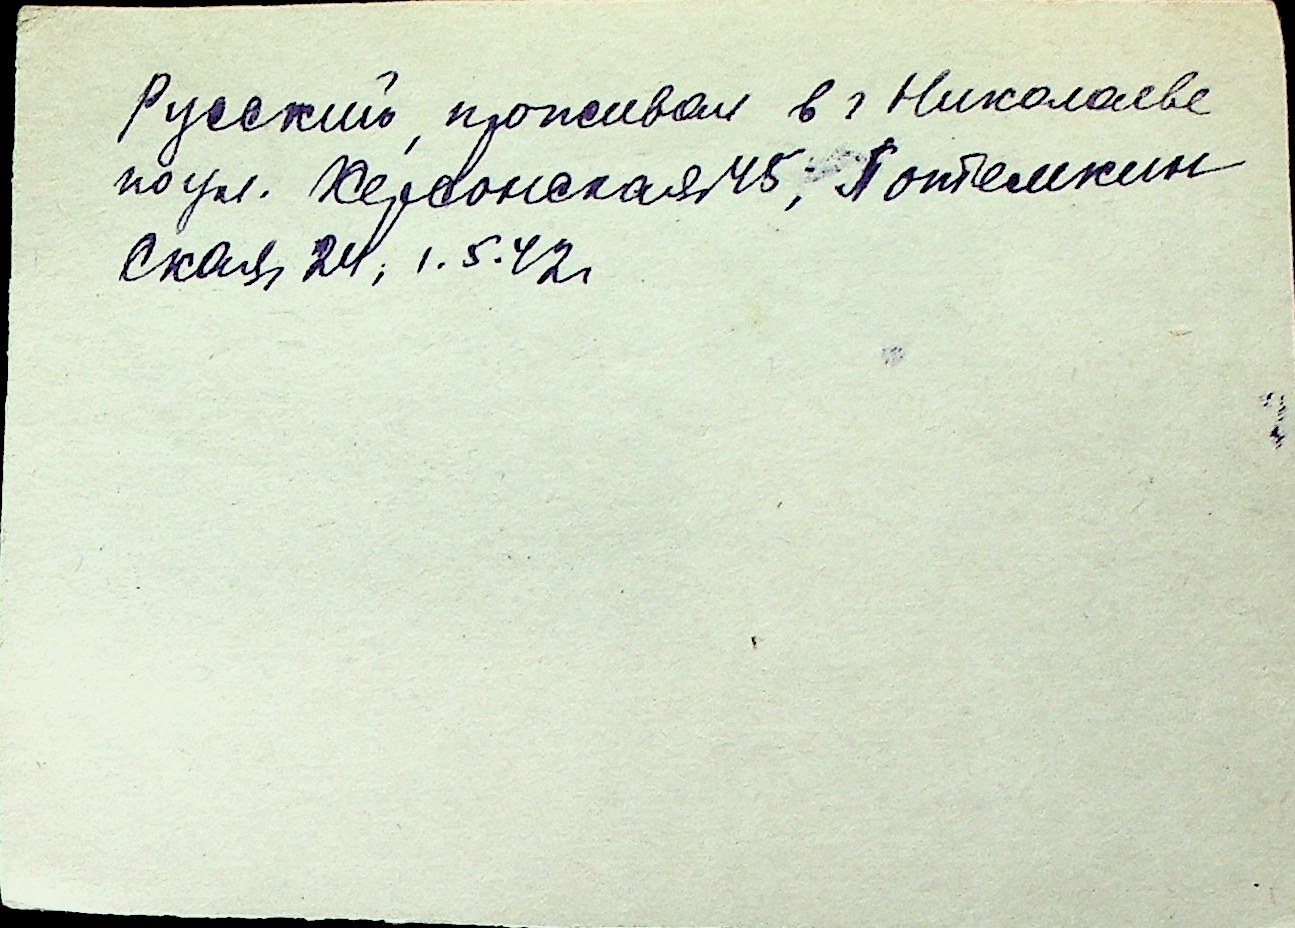 Русский, проживал в г Николаеве
по ул. Херсонская 45, Потемкин
ская, 24, 1.5.42г